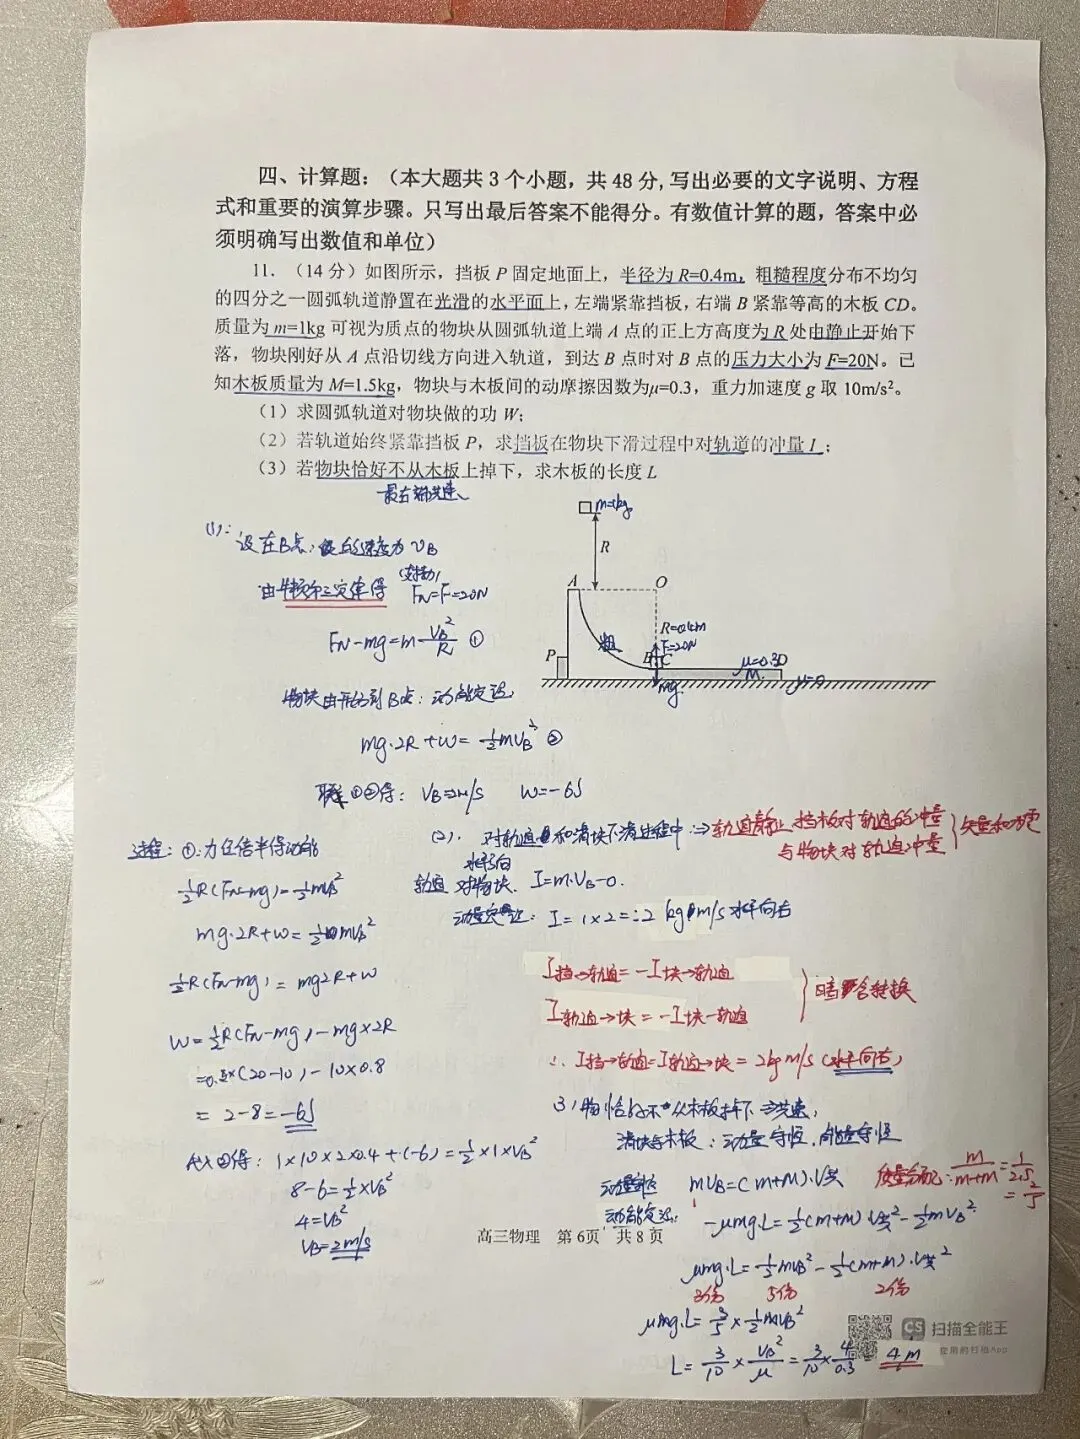 四、计算题：（本大题共 3 个小题，共 48 分, 写出必要的文字说明、方程
式和重要的演算步骤。只写出最后答案不能得分。有数值计算的题，答案中必
须明确写出数值和单位）
11．（14 分）如图所示，挡板 P 固定地面上，半径为 R=0.4m，粗糙程度分布不均匀
的四分之一圆弧轨道静置在光滑的水平面上，左端紧靠挡板，右端 B 紧靠等高的木板 CD。
质量为 m=1kg 可视为质点的物块从圆弧轨道上端 A 点的正上方高度为 R 处由静止开始下
落，物块刚好从 A 点沿切线方向进入轨道，到达 B 点时对 B 点的压力大小为 F=20N。已
知木板质量为 M=1.5kg，物块与木板间的动摩擦因数为μ=0.3，重力加速度 g 取 10m/s²。
（1）求圆弧轨道对物块做的功 W；
（2）若轨道始终紧靠挡板 P，求挡板在物块下滑过程中对轨道的冲量 I；
（3）若物块恰好不从木板上掉下，求木板的长度 L
最右端共速
m=1kg
R
A
O
R=0.4m
F=20N
粗
P
B
C
μ=0.3
D
M
mg
μ=0
(1):
设在B点: 的速度为 VB
由牛顿第三定律得 (支持力) FN=F=20N
FN-mg=m VB²/R ①
物块由开始到B点: 动能定理:
mg·2R+W=½mVB² ②
联立①②得: VB=2m/s W=-6J
过程: ①:力位倍半得动能
½R(FN-mg)=½mVB²
mg·2R+W=½mVB²
½R(FN-mg)=mg2R+W
W=½R(FN-mg)-mg×2R
×(20-10)-10×0.8
=2-8=-6J
代入②得: 1×10×2×0.4+(-6)=½×1×VB²
8-6=½×VB²
4=VB²
VB=2m/s
(2). 对轨道 和滑块下滑过程中 ⇒轨道静止 挡板对轨道的冲量
与物块对轨道冲量
矢量和为零
水平方向
轨道对物块. I=m·VB-0.
动量定理: I=1×2=2 kg·m/s 水平向右
I挡→轨道=-I块→轨道
I轨道→块=-I块→轨道
暗含转换
∴ I挡→轨道=I轨道→块=2kg m/s (水平向右)
3) 物恰好不从木板掉下⇒共速,
滑块与木板: 动量守恒, 能量守恒
动量守恒 mVB=(m+M)·V共
质量分配: m/(m+M)=1/2.5=2/5
动能定理: -μmg·L=½(m+M)V共²-½mVB²
μmg·L=½mVB²-½(m+M)·V共²
3份 5份 2份
μmg·L=3/5×½mVB²
L=3/10×VB²/μ=3/10×4/0.3 4m
高三物理 第 6页 共 8 页
CS 扫描全能王